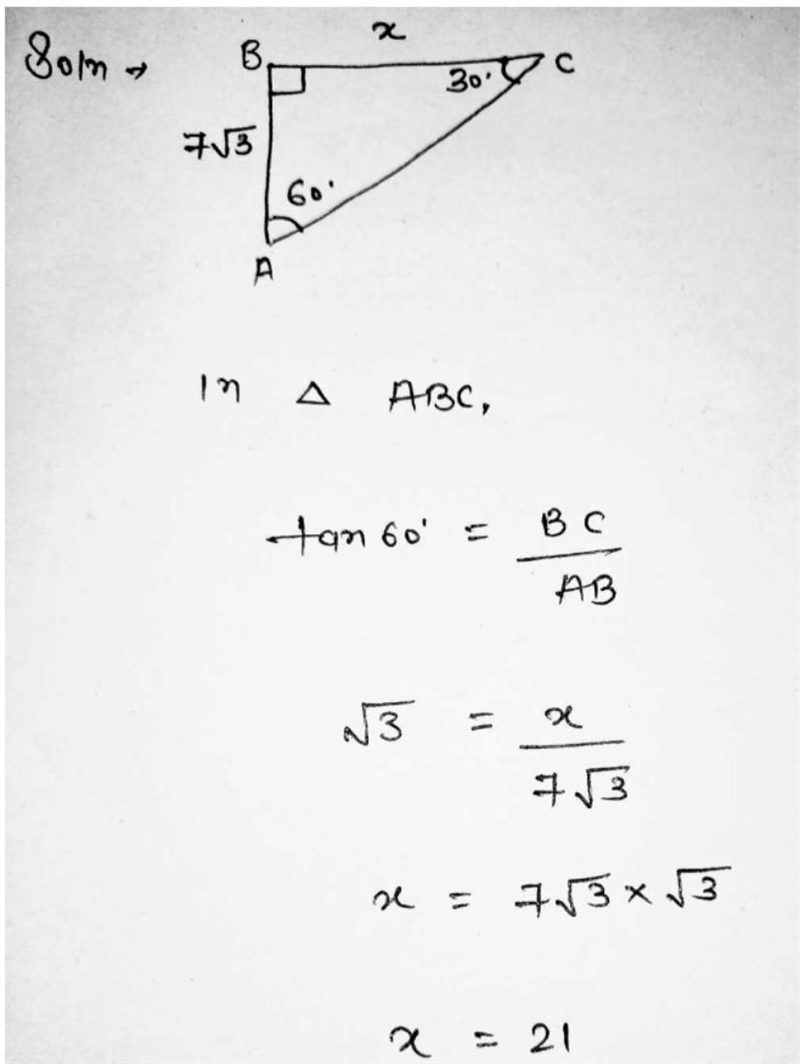 Soln →
x
B
30°
C
7√3
60°
A
In △ ABC,
tan 60° = BC / AB
√3 = x / 7√3
x = 7√3 × √3
x = 21